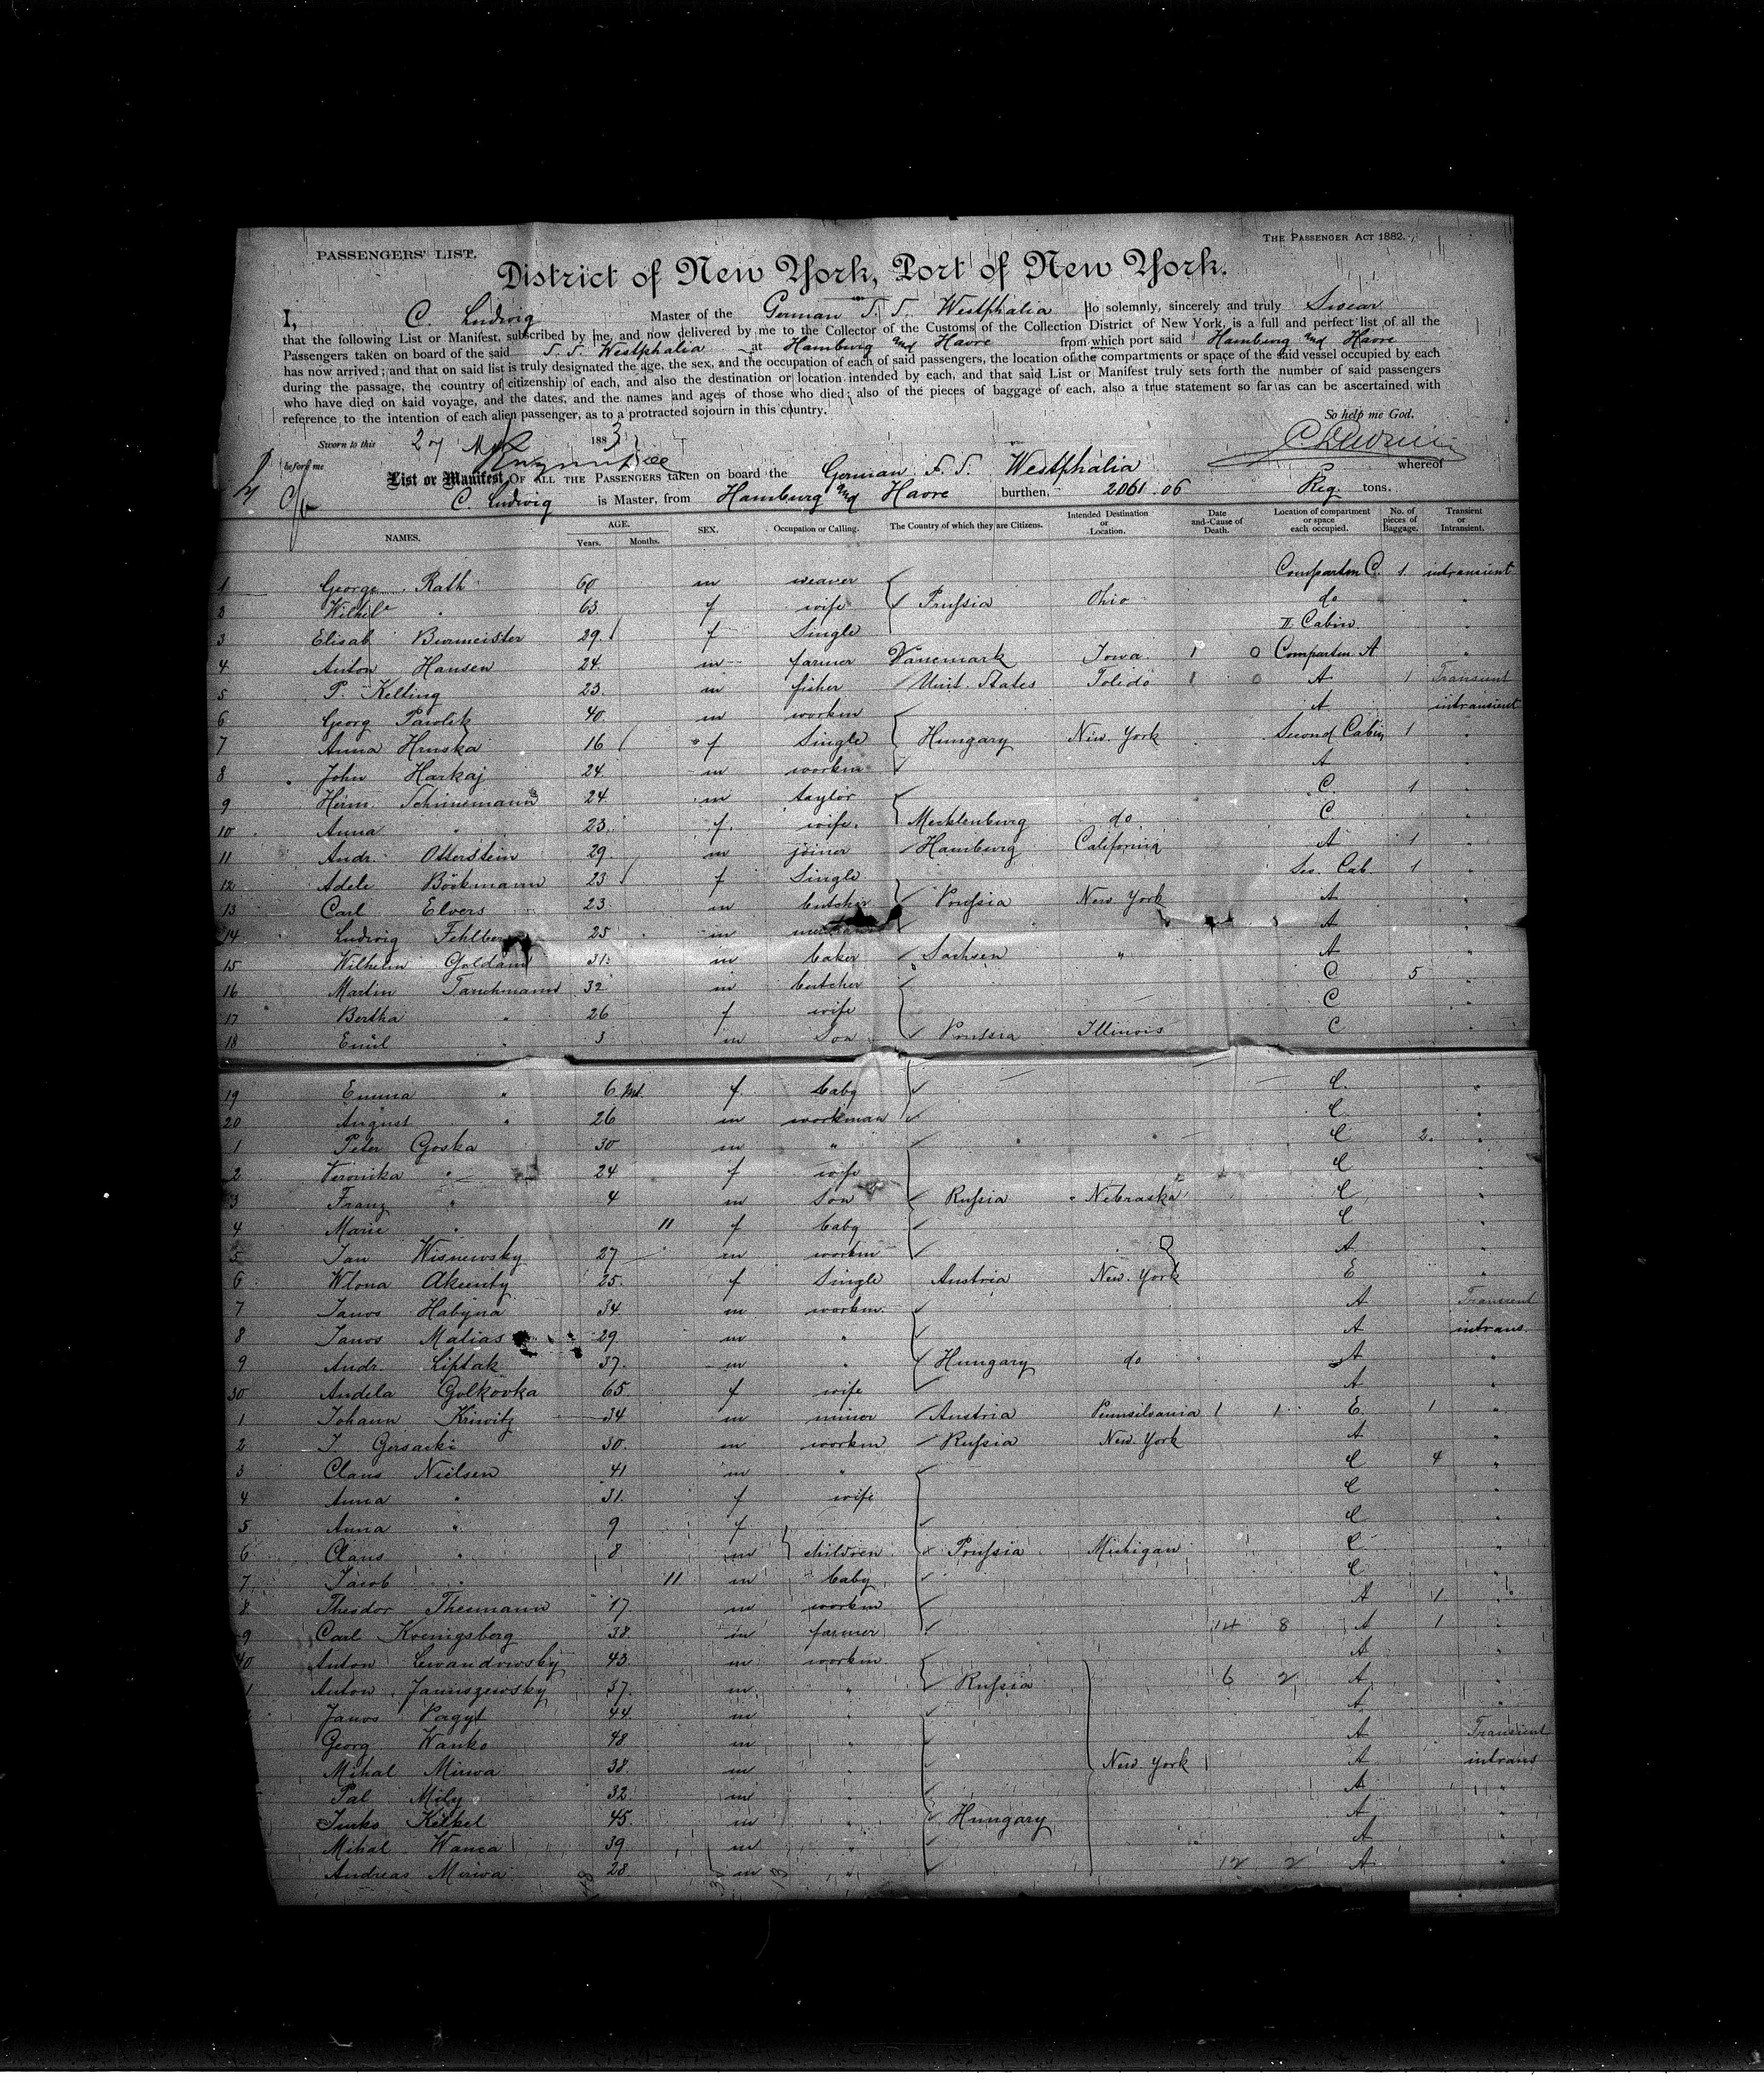 THE PASSENGER ACT 1882.
PASSENGERS' LIST.
District of New York, Port of New York.
I, C. Ludwig Master of the German S. S. Westphalia do solemnly, sincerely and truly Swear
that the following List or Manifest, subscribed by me, and now delivered by me to the Collector of the Customs of the Collection District of New York, is a full and perfect list of all the
Passengers taken on board of the said S. S. Westphalia at Hamburg and Havre from which port said Hamburg and Havre
has now arrived; and that on said list is truly designated the age, the sex, and the occupation of each of said passengers, the location of the compartments or space of the said vessel occupied by each
during the passage, the country of citizenship of each, and also the destination or location intended by each, and that said List or Manifest truly sets forth the number of said passengers
who have died on said voyage, and the dates, and the names and ages of those who died; also of the pieces of baggage of each, also a true statement so far as can be ascertained with
reference to the intention of each alien passenger, as to a protracted sojourn in this country.
So help me God.
Sworn to this 27 1883
before me
List or Manifest OF ALL THE PASSENGERS taken on board the German S. S. Westphalia whereof
C. Ludwig is Master, from Hamburg and Havre burthen, 2061.06 Reg. tons.
NAMES. AGE. Years. Months. SEX. Occupation or Calling. The Country of which they are Citizens. Intended Destination or Location. Date and Cause of Death. Location of compartment or space each occupied. No. of pieces of Baggage. Transient or Intransient.
1 George Rath 60 m weaver Compartm C. 1 intransient
2 Wilhile " 63 f wife Prussia Ohio do "
3 Elisab Burmeister 29 f Single II Cabin "
4 Anton Hansen 24 m farmer Danemark Iowa 1 0 Compartm. A "
5 P. Kelling 23 m fisher Unit. States Toledo 1 0 A 1 Transient
6 Georg Pawlik 40 m workm A intransient
7 Anna Hruska 16 f Single Hungary New York Second Cabin 1 "
8 John Harkaj 24 m workm A "
9 Herm Schünemann 24 m taylor C. 1 "
10 Anna " 23 f wife Mecklenburg do C "
11 Andr. Otterstein 29 m joiner Hamburg California A 1 "
12 Adele Böckmann 23 f Single Sec. Cab. 1 "
13 Carl Elvers 23 m butcher Prussia New York A "
14 Ludwig 25 m A "
15 Wilhelm Goldam 31 m baker Sachsen " A "
16 Martin Tanchmann 32 m butcher C 5 "
17 Bertha " 26 f wife C "
18 Emil " 3 m Son Prussia Illinois C "
19 Emma " 6 Mt. f baby C. "
20 August " 26 m workman C. "
1 Peter Goska 30 m " " " C 2. "
2 Veronika " 24 f wife C "
3 Franz " 4 m Son Russia Nebraska C "
4 Marie " 11 f baby C "
5 Jan Wisnewsky 27 m workm A "
6 Wlona 25 f Single Austria New York E "
7 Janos Habyna 34 m workm. A Transient
8 Janos Malias 29 m " A intrans.
9 Andr. Liptak 37 m " Hungary do A "
30 Andela Golkovka 65 f wife A "
1 Johann Kriwitz 34 m minor Austria Pennsilvania 1 1 E 1 "
2 J. Gersacki 30 m workm Russia New York A "
3 Claus Nielsen 41 m " C 4 "
4 Anna " 31 f wife C "
5 Anna " 9 f C "
6 Claus " 8 m children Prussia Michigan C "
7 Jacob " 11 m baby C "
8 Theodor Theimann 17 m workm A 1 "
9 Carl Koenigsberg 38 m farmer 14 8 A 1 "
40 Anton Lewandowsky 43 m workm A "
1 Anton Januszewsky 37 m " Russia 6 2 A "
Janos 44 m " A "
Georg Wanko 48 m " A Transient
Mihal Mirwa 38 m " New York A intrans
Pal Mily 32 m " A "
Janko Kelkel 45 m " Hungary A "
Mihal Wanca 39 m " A "
Andreas Mirwa 28 m " 12 2 A "